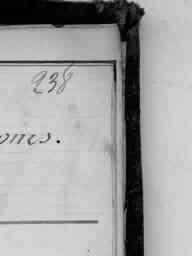 238
ones.